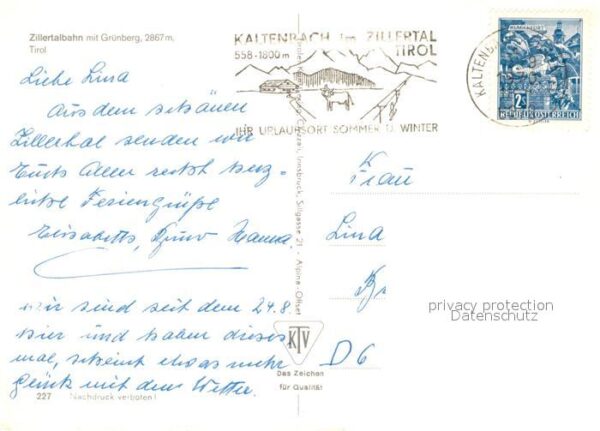 Zillertalbahn mit Grünberg, 2867 m,
Tirol
KALTENBACH im ZILLERTAL
TIROL
558-1800 m
IHR URLAUBSORT SOMMER U. WINTER
KALTENBACH
2S
REPUBLIK ÖSTERREICH
Liebe Lina
Aus dem schönen
Zillertal senden wir
Euch Allen recht herz-
liche Feriengrüße
Elisabeth, Hanna
wir sind seit dem 24.8.
hier und haben dieses
mal, scheint etwas mehr
Glück mit dem Wetter.
Frau
Lina
D 6
privacy protection
Datenschutz
Innsbruck, Sillgasse 21 - Alpina-Offset
KTV
Das Zeichen
für Qualität
227 Nachdruck verboten!